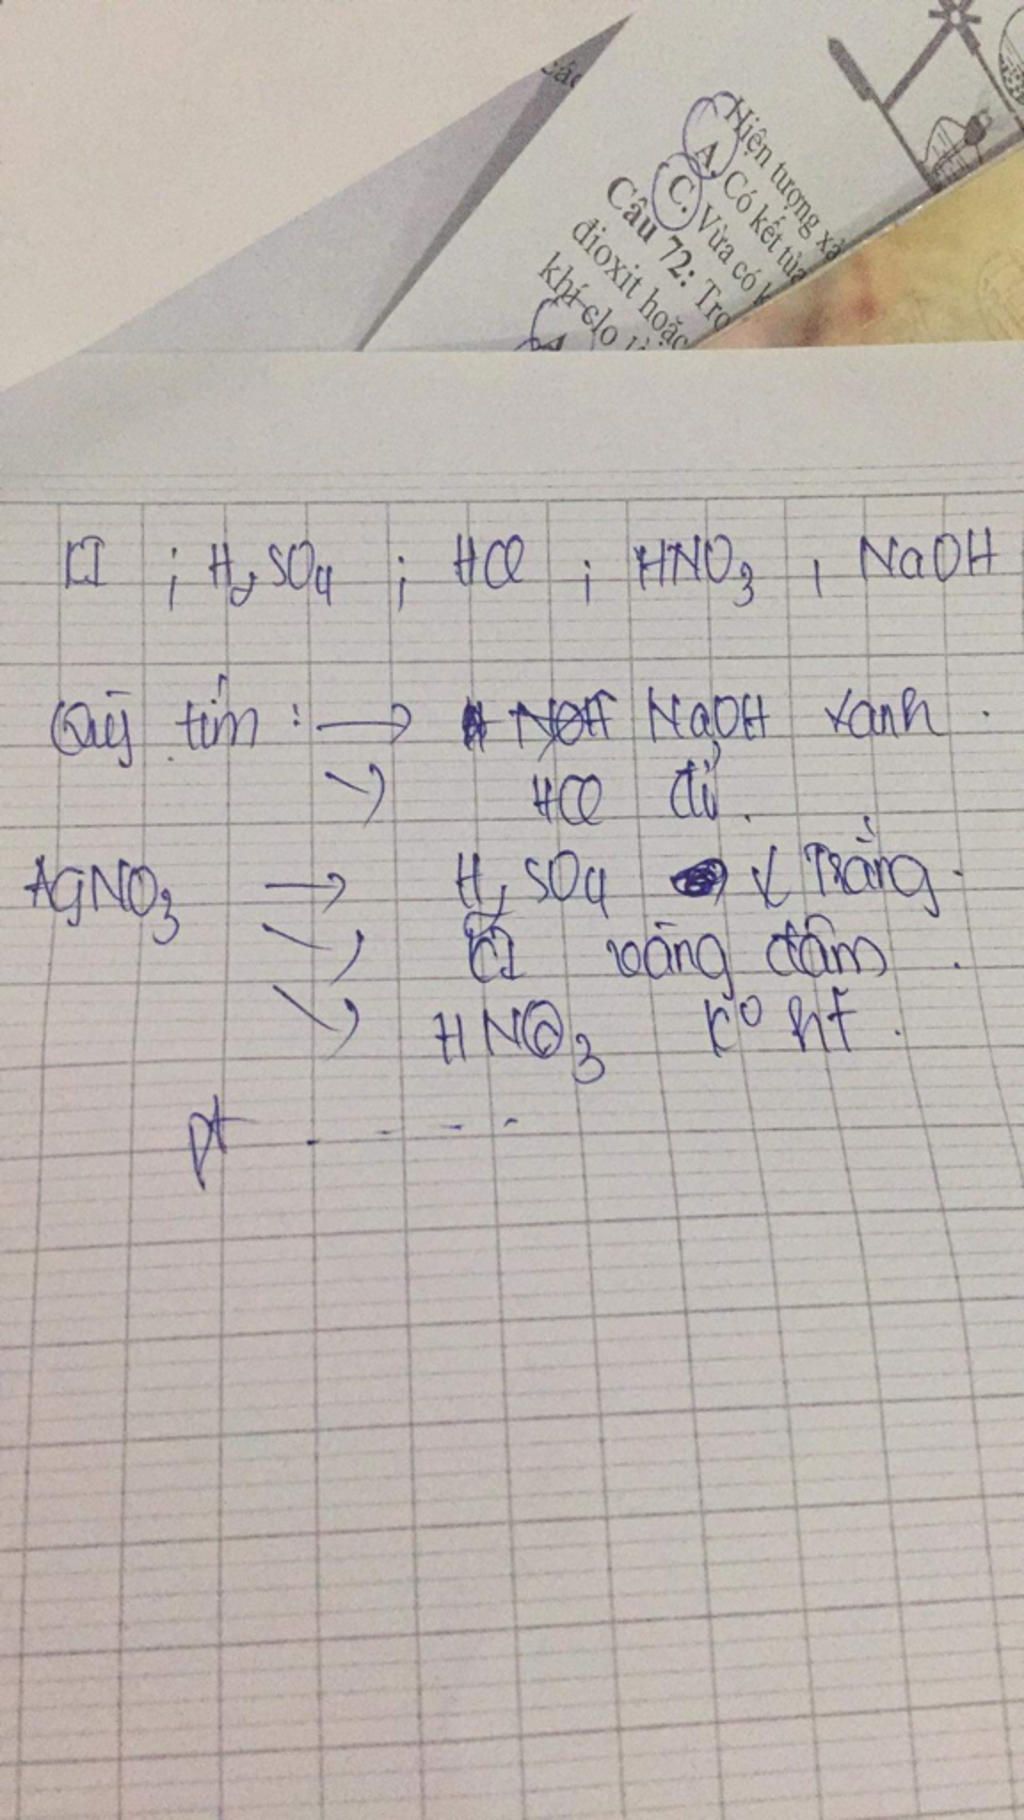 các
Hiện tượng xả
A. Có kết tủa
C. Vừa có k
Câu 72: Tro
đioxit hoặc
khí clo là
KI ; H₂SO₄ ; HCl ; HNO₃ , NaOH
Quỳ tím : → NaOH xanh .
HCl đỏ .
AgNO₃ → H₂SO₄ ↓ Trắng .
KI vàng đậm .
HNO₃ k° ht .
pt . - - -